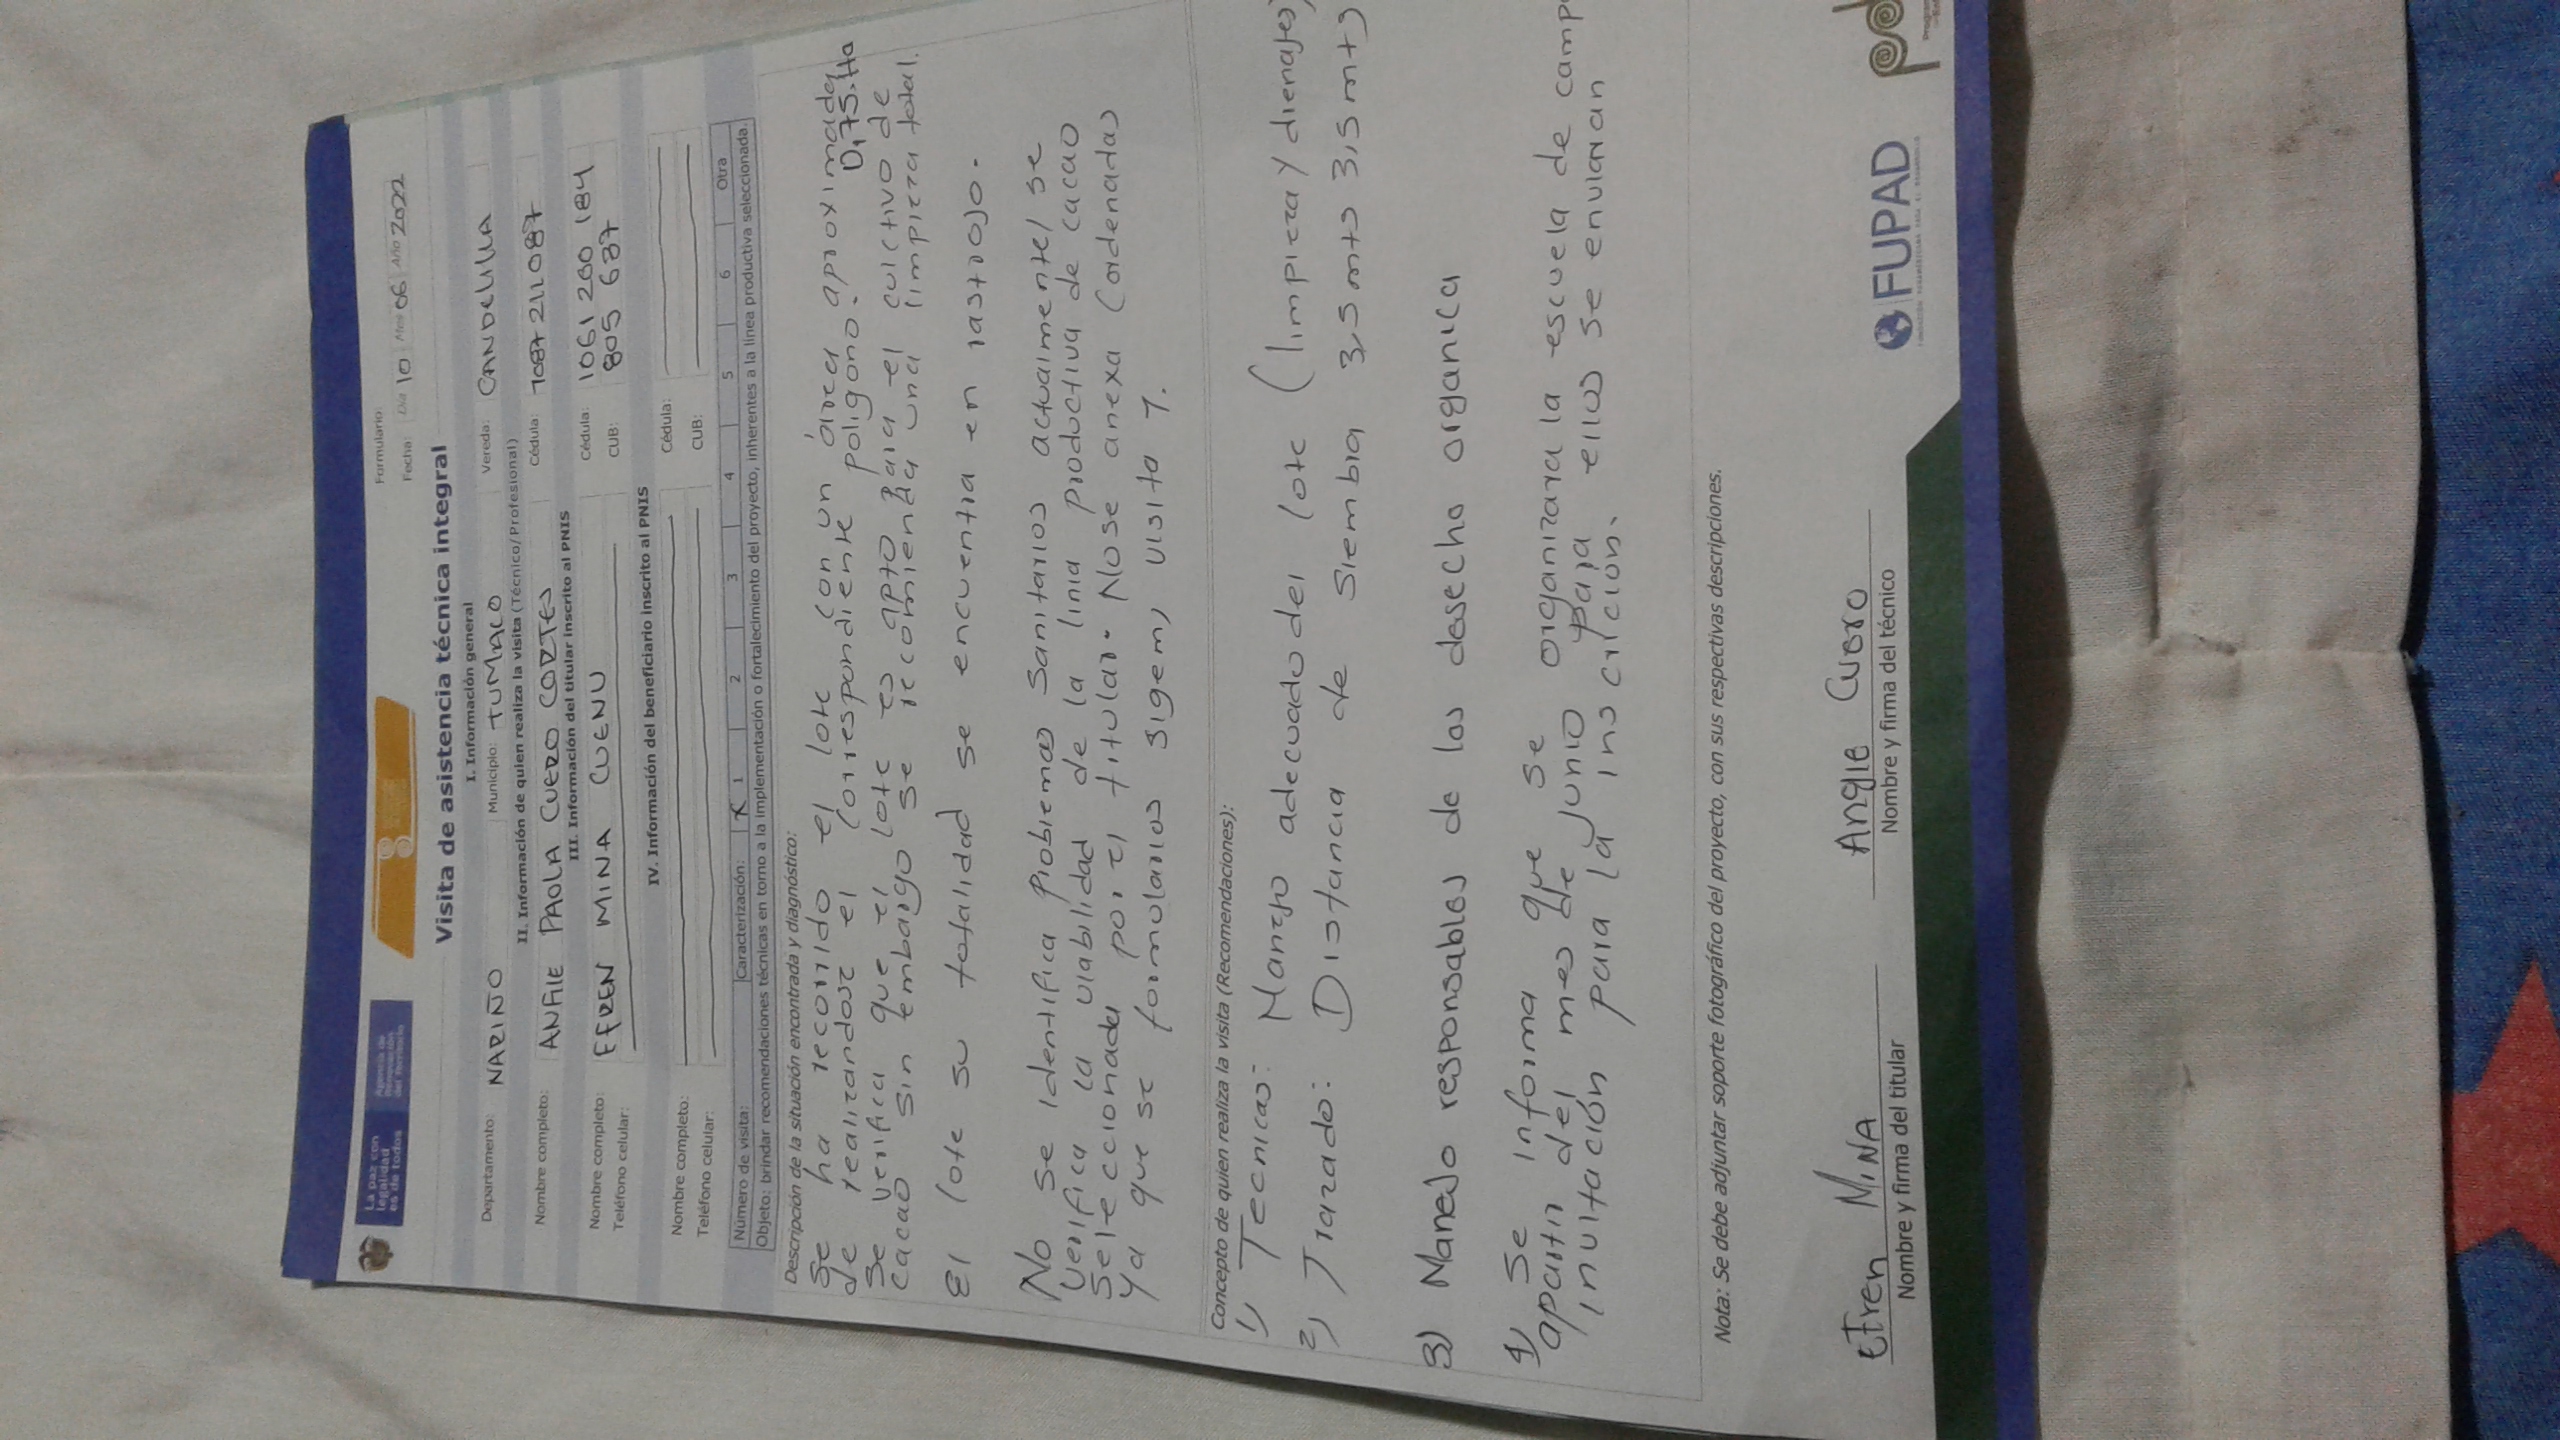 La paz con
legalidad
es de todos
Agencia de
Renovación
del Territorio
Formulario:
Fecha: Día 10 Mes 06 Año 2022
Visita de asistencia técnica integral
I. Información general
Departamento: NARIÑO Municipio: TUMACO Vereda: CANDELILLA
II. Información de quien realiza la visita (Técnico/Profesional)
Nombre completo: ANGIE PAOLA CUERO CORTES Cédula: 1087211087
III. Información del titular inscrito al PNIS
Nombre completo: EFREN MINA CUENU Cédula: 1061 260 184
Teléfono celular: CUB: 805 637
IV. Información del beneficiario inscrito al PNIS
Nombre completo: Cédula:
Teléfono celular: CUB:
Número de visita: Caracterización: X 1 2 3 4 5 6 Otra
Objeto: brindar recomendaciones técnicas en torno a la implementación o fortalecimiento del proyecto, inherentes a la línea productiva seleccionada.
Descripción de la situación encontrada y diagnóstico:
Se ha recorrido el lote con un área aproximada
de realizandose el correspondiente poligono. 0,75.Ha
Se verifica que el lote es apto para el cultivo de
cacao sin embargo se recomienda una limpieza total.
El lote su totalidad se encuentra en rastrojo.
No se identifica problemas sanitarios actualmente/ se
verifica la viabilidad de la linia productiva de cacao
seleccionada por el titular. No se anexa Cordenadas
ya que se formularios sigem, visita 1.
Concepto de quien realiza la visita (Recomendaciones):
1) Tecnicas: Manejo adecuado del lote (limpieza y drenajes)
2) Trazado: Distancia de siembra 3,5 mts 3,5 mts
3) Manejo responsables de los desecho organica
4) Se informa que se organizara la escuela de camp
apartin del mes de Junio para ellos se enviaran
invitación para la inscrición.
Nota: Se debe adjuntar soporte fotográfico del proyecto, con sus respectivas descripciones.
Efren MINA Angie Cuero
Nombre y firma del titular Nombre y firma del técnico
FUPAD